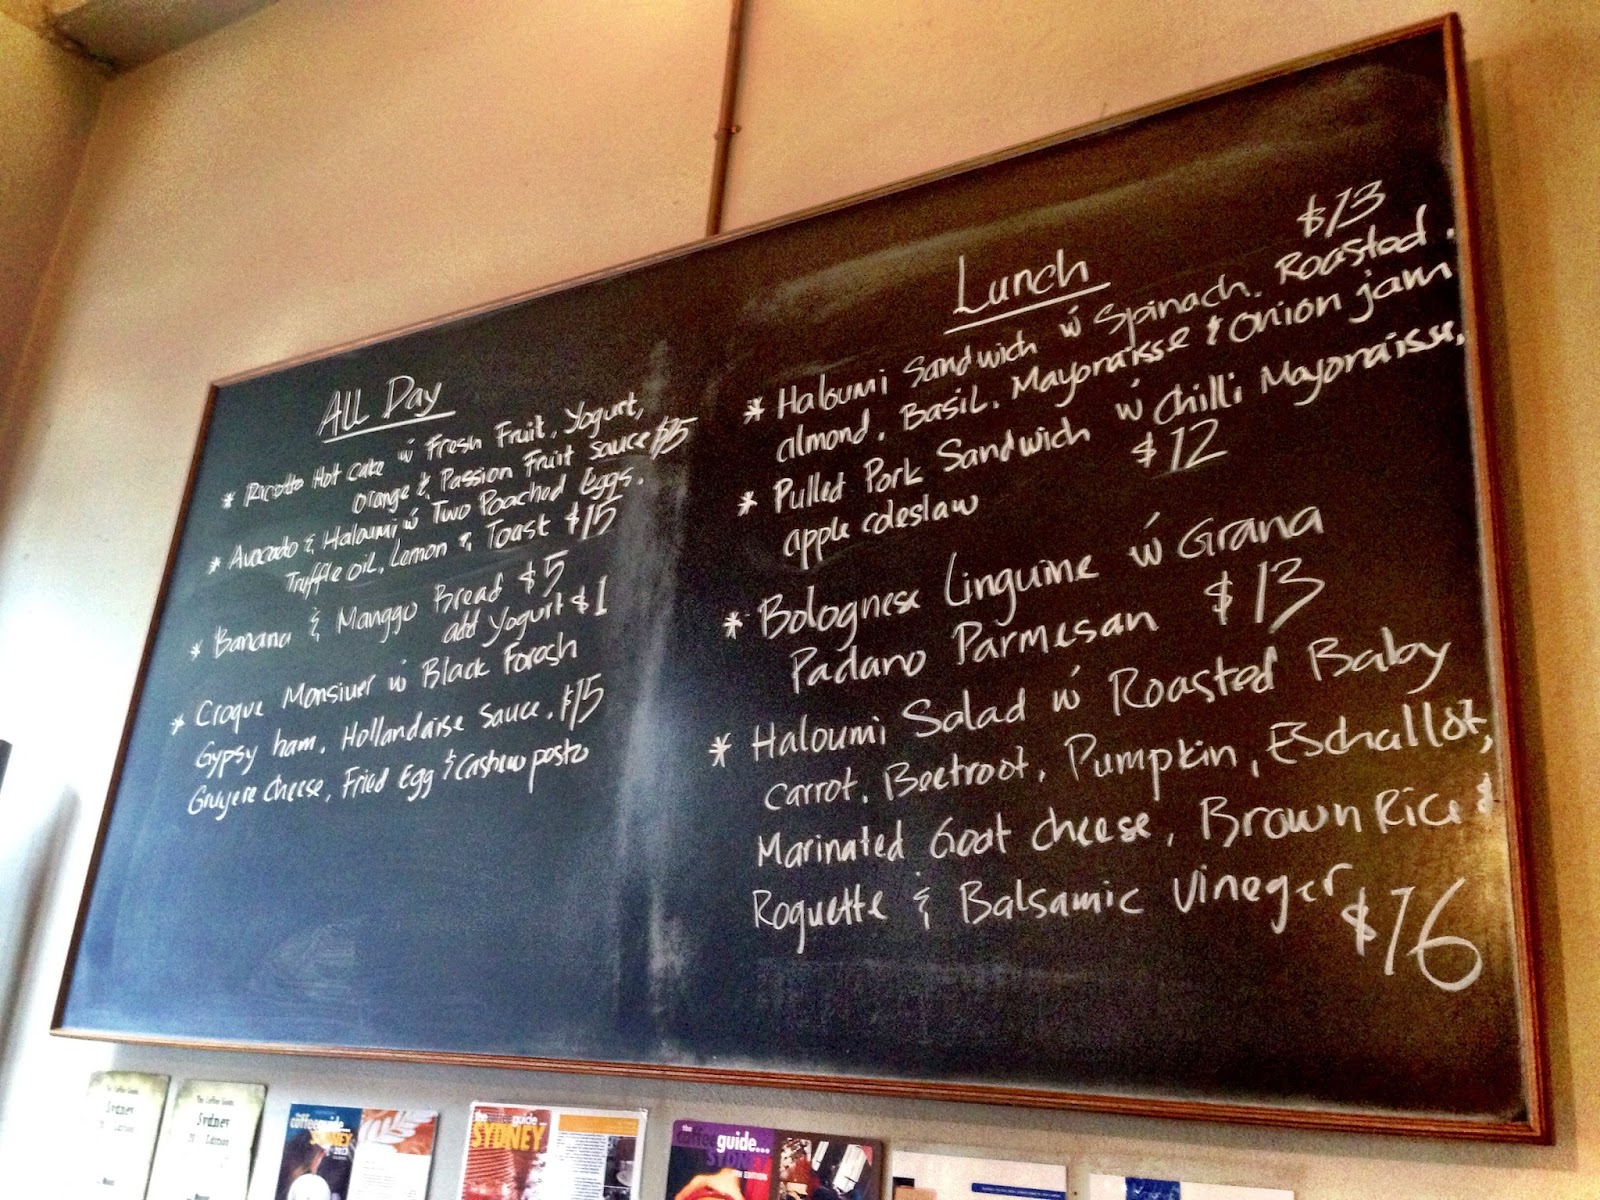 All Day
* Ricotta Hot Cake w Fresh Fruit, Yogurt,
orange & Passion Fruit Sauce $15
* Avocado & Haloumi w Two Poached Eggs.
Truffle oil, Lemon & Toast $15
* Banana & Manggo Bread $5
add Yogurt $1
* Croque Monsiuer w Black Foresh
Gypsy ham, Hollandaise Sauce, $15
Gruyere Cheese, Fried Egg & Cashew pesto
Lunch
$13
* Haloumi Sandwich w Spinach, Roasted
almond, Basil, Mayonaisse & Onion jam
* Pulled Pork Sandwich w Chilli Mayonaisse,
apple coleslaw $12
* Bolognese Linguine w Grana
Padano Parmesan $13
* Haloumi Salad w Roasted Baby
Carrot, Beetroot, Pumpkin, Eschallot,
Marinated Goat Cheese, Brown Rice &
Roquette & Balsamic Vineger $16
The Coffee Guide
Sydney
Edition
The Coffee Guide
Sydney
Edition
coffeeguide...
SYDNEY
2013
the
guide...
SYDNEY
the
coffeeguide...
SYDNEY
EDITION